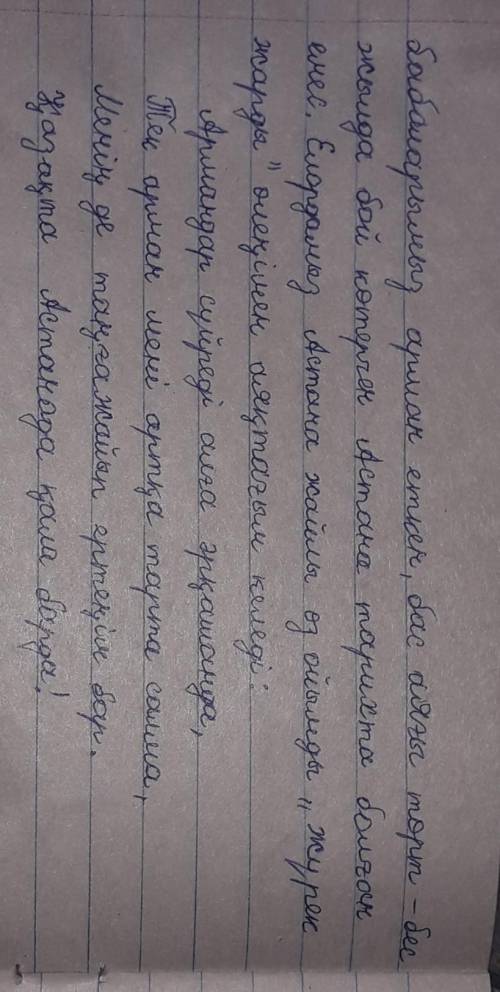 бабаларымыз арман еткен, бас аяғы төрт - бес
жылда бой көтерген Астана тарихта болған
емес. Елордамыз Астана жайлы өз ойымды „ жүрек
жарды " өлеңімен аяқтағым келеді:
Армандар сүйреді алға әрқашанда,
Тек арман мені артқа тарта салма,
Менің де таңғажайып ертеңім бар.
Қазақта Астанада қала барда!